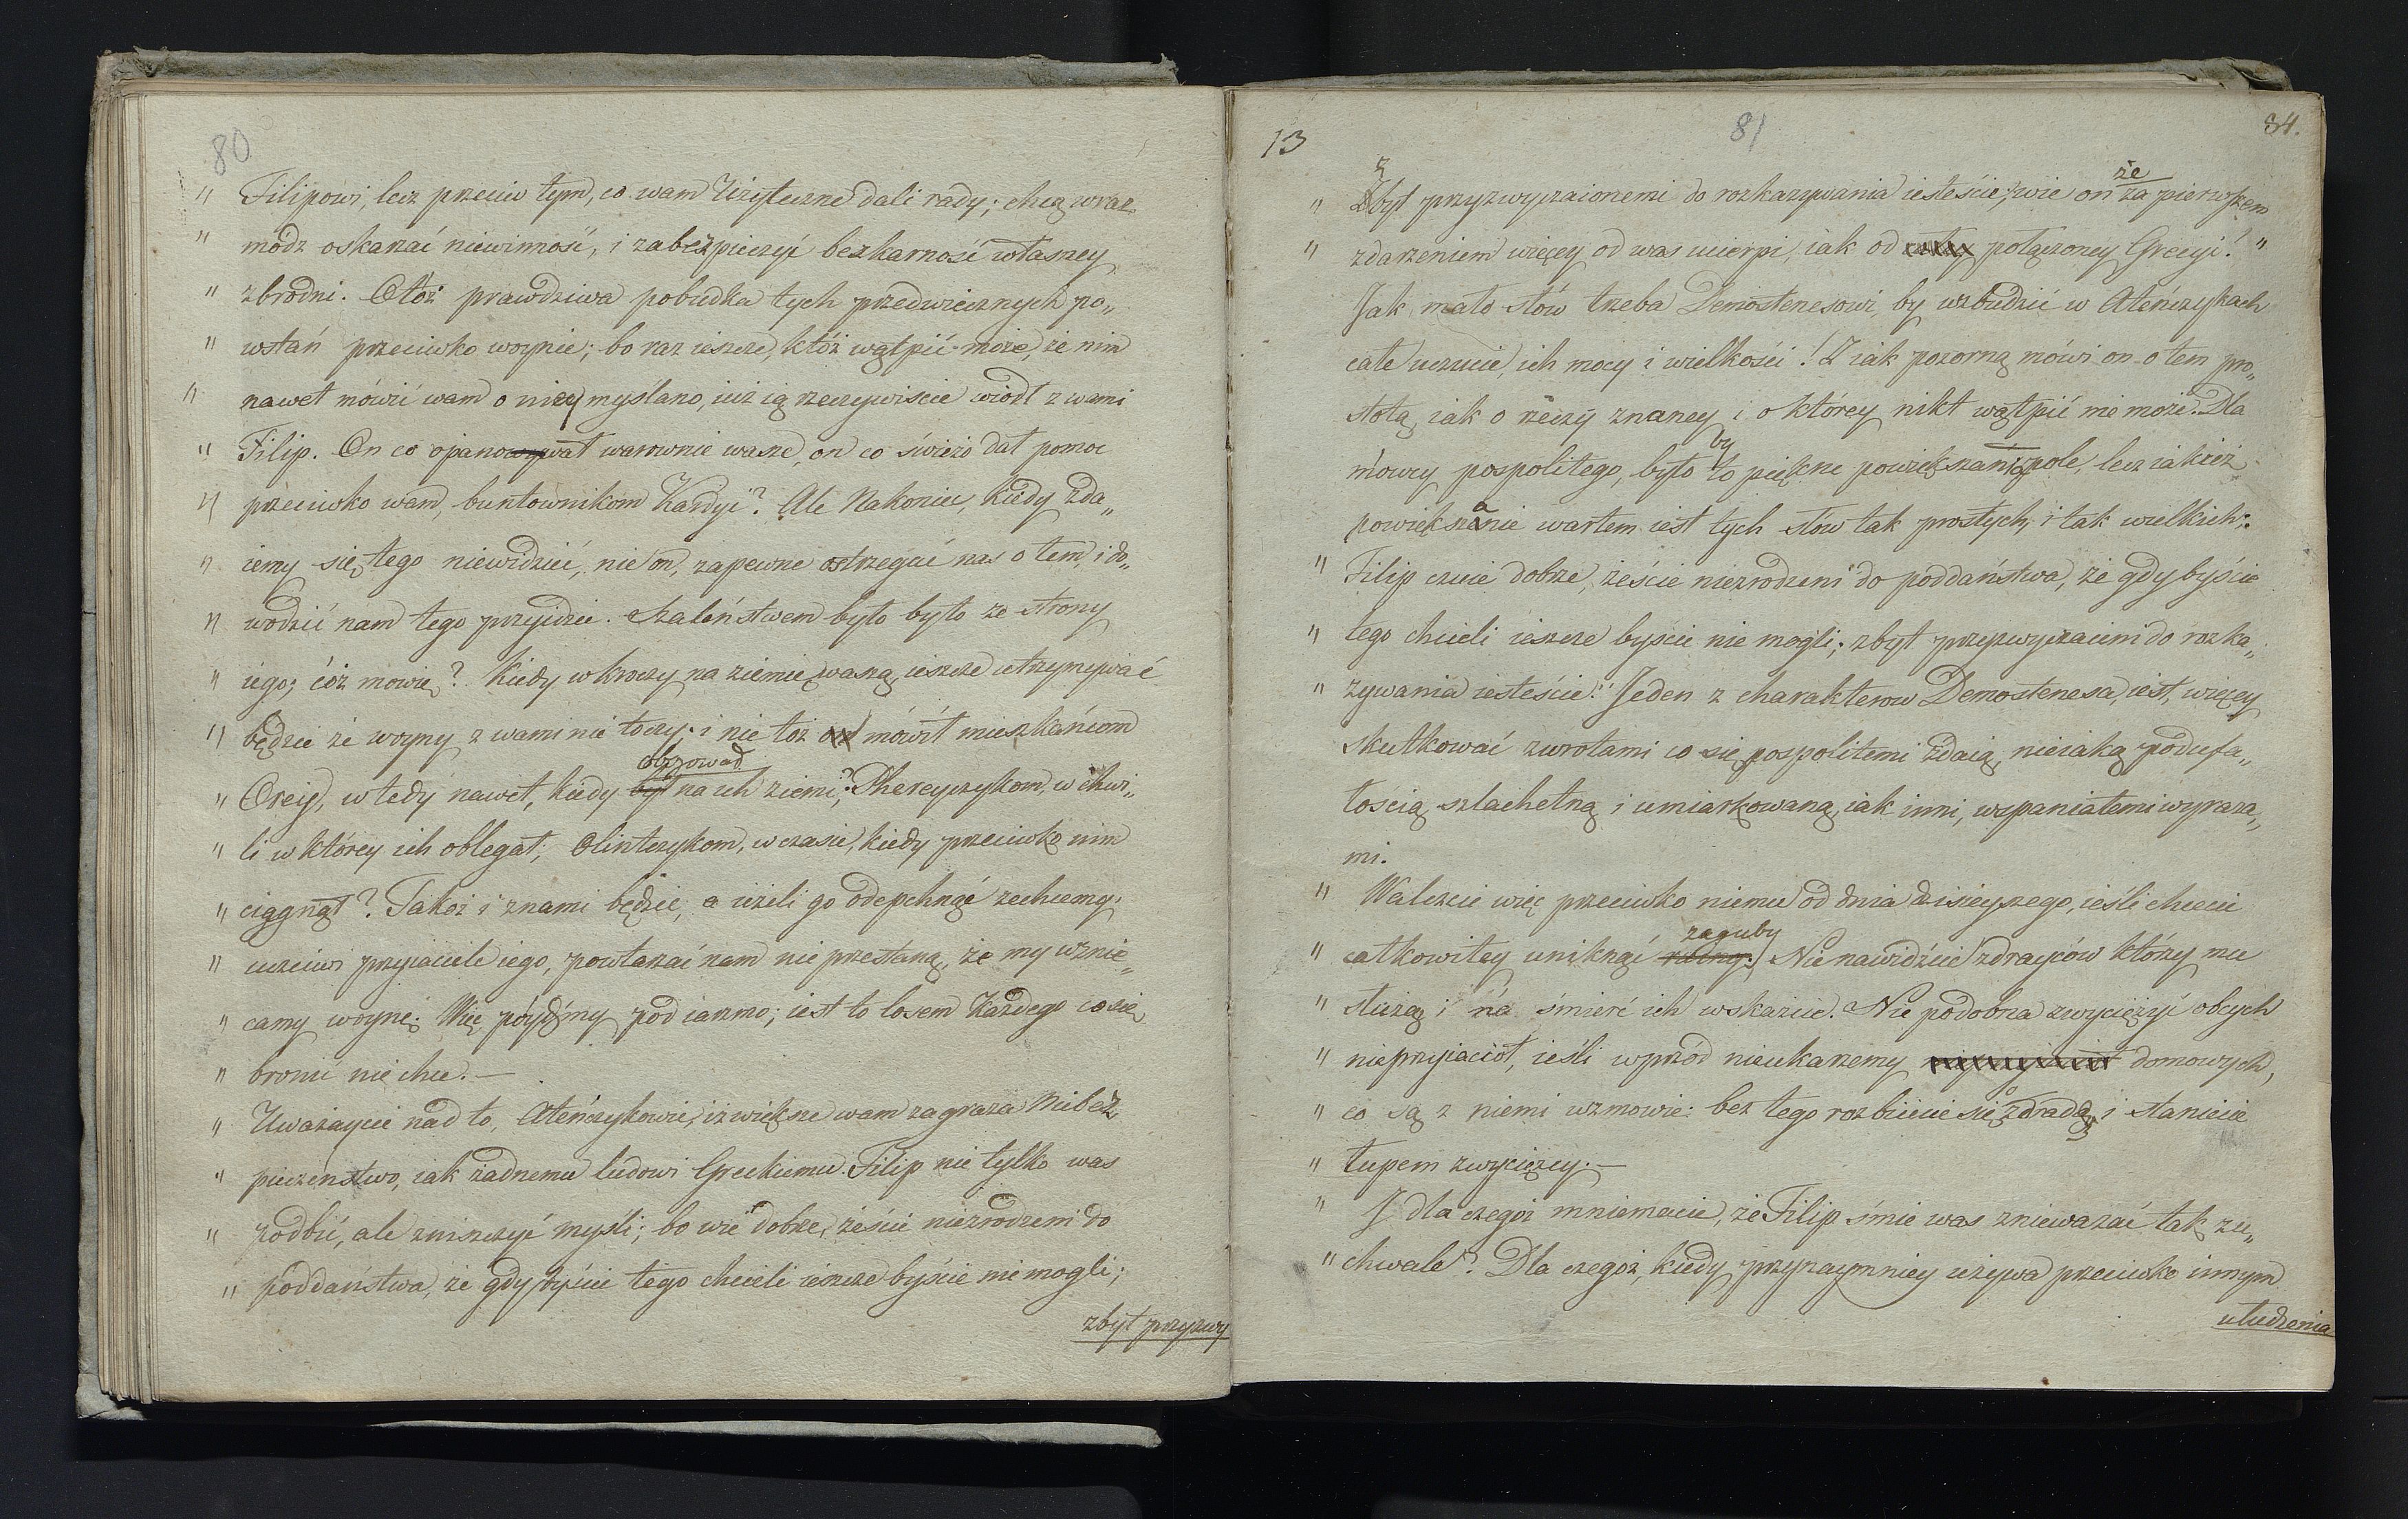 80
" Filipowi, lecz przeciw tym, co wam Użyteczne dali rady; chcą wraz
" módz oskarzać niewinność, i zabezpieczyć bezkarność własney
" zbrodni. Otóż prawdziwa pobudka tych przedwiecznych po„
" wstań przeciwko woynie; bo raz ieszcze, któż wątpić może, że nim
" nawet mówić wam o niey myślano, iuż ią rzeczywiście wiodł z wami
" Filip. On co opanował warownie wasze, on co świeżo dał pomoc
" przeciwko wam, buntownikom Kardyi? Ale Nakoniec, kiedy zda„
" iemy się tego niewidzieć, nie on, zapewne ostrzegać nas o tem, i do„
" wodzić nam tego przyidzie. Szaleństwem było było ze strony
" iego; cóż mowię? Kiedy wkroczy na ziemię waszą, ieszcze utrzymywać
" będzie że woyny z wami nie toczy: i nie toż on mówił mieszkańcom
obozował
" Orei, wtedy nawet, kiedy był na ich ziemi? Phereyczykom, w chwi„
" li w którey ich oblegał; Olintczykom, w czasie, kiedy przeciwko nim
" ciągnął? Takoż i znami będzie; a ieżeli go odepchnąć zechcemy,
" uczciwi przyiaciele iego, powtarzać nam nie przestaną, że my wznie„
" camy woynę. Więc póydźmy pod iarzmo; iest to losem Każdego co się
" bronić nie chce.—
" Uważaycie nad to, Ateńczykowie, iż większe wam zagraża Niebez
" pieczeństwo, iak żadnemu ludowi Greckiemu. Filip nie tylko was
" podbić, ale zniszczyć myśli; bo wie dobrze, żeście niezrodzeni do
" poddaństwa, że gdybyście tego chcieli ieszcze byście nie mogli;
zbyt przyzwy
13
81
34.
z że
" Zbyt przyzwyczaionemi do rozkazywania iesteście; wie on za pierwszem
" zdarzeniem więcey od was ucierpi, iak od całey połączoney Grecyi! "
Jak mało słów trzeba Demostenesowi, by wzbudzić w Ateńczykach
całe uczucie, ich mocy i wielkości! Z iak pozorną mówi on o tem pro„
stotą, iak o rzeczy znaney i o którey nikt wątpić nie może. Dla
by
mówcy pospolitego, było to piękne powiększania pole, lecz iakież
a
powiększanie wartem iest tych słow tak prostych, i tak wielkich:
" Filip czuie dobrze, żeście niezrodzeni do poddaństwa, że gdybyście
" tego chcieli ieszcze byscie nie mogli; zbyt przyzwyczaieni do rozka„
" zywania iesteście!" Jeden z charakterow Demostenesa, iest, więcey
skutkować zwrotami co się pospolitemi zdaią, nieiaką podufa„
łością szlachetną i umiarkowaną, iak inni, wspaniałemi wyraza„
mi.
" Walczcie więc przeciwko niemu od dnia dzisieyszego, ieśli chcecie
zaguby
" całkowitey uniknąć Nienawidźcie zdrayców którzy mu
" służą i na śmierć ich wskażcie. Nie podobna zwyciężyć obcych
" nieprzyiaciół, ieśli wprzód nieukarzemy nieprzyiaciół domowych,
" co są z niemi wzmowie: bez tego rozbiiecie się zdradą, i staniecie
" łupem zwycięzcy.—
" I dla czegoż mniemacie, że Filip śmie was znieważać tak zu„
" chwale? Dla czegoż, kiedy przynaymniey używa przeciwko innym
uludzenia